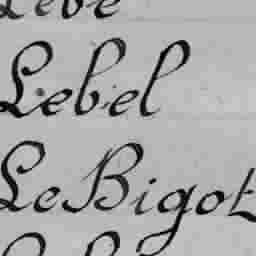 Lebel
LeBigot